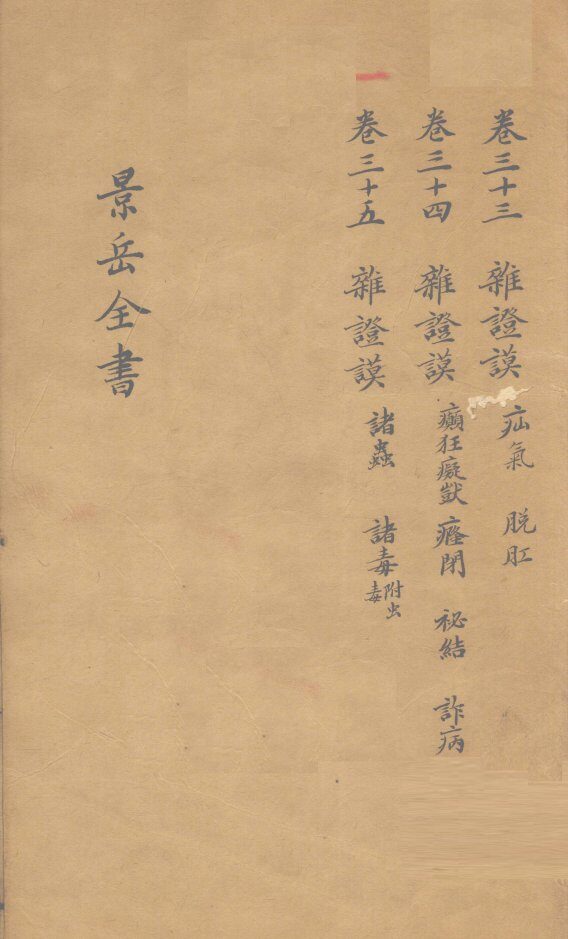 卷三十三 雜證謨 疝氣 脱肛
卷三十四 雜證謨 癲狂癡獃 癃閉 祕結 詐病
卷三十五 雜證謨 諸蟲 諸毒附虫毒
景岳全書